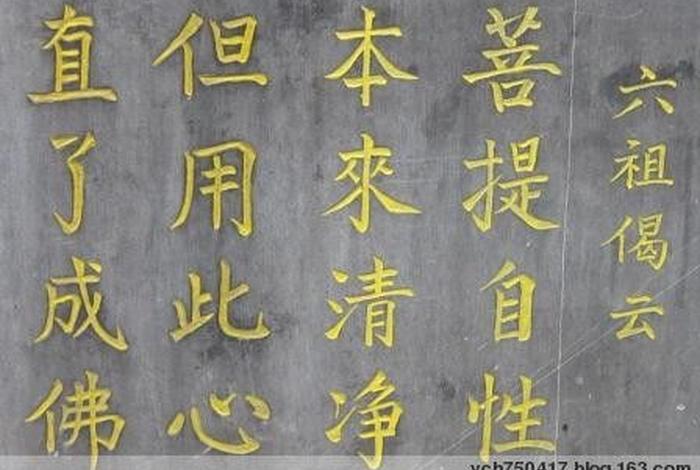 六祖偈云
菩提自性
本來清净
但用此心
直了成佛
ycb750417.blog.163.com